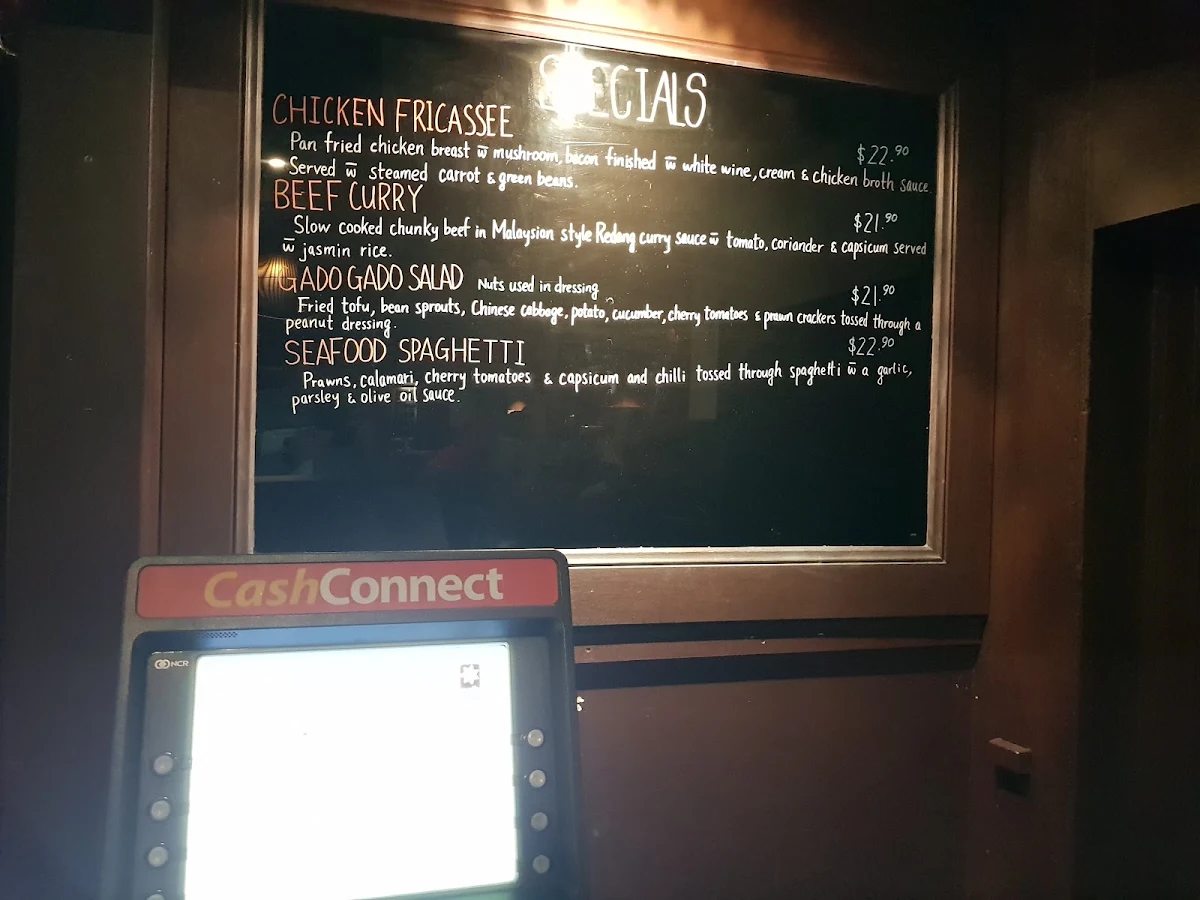 SPECIALS
CHICKEN FRICASSEE
$22.90
Pan fried chicken breast w̅ mushroom, bacon finished w̅ white wine, cream & chicken broth sauce.
Served w̅ steamed carrot & green beans.
BEEF CURRY
$21.90
Slow cooked chunky beef in Malaysian style Redang curry sauce w̅ tomato, coriander & capsicum served
w̅ jasmin rice.
GADO GADO SALAD Nuts used in dressing
$21.90
Fried tofu, bean sprouts, Chinese cabbage, potato, cucumber, cherry tomatoes & prawn crackers tossed through a
peanut dressing.
SEAFOOD SPAGHETTI
$22.90
Prawns, calamari, cherry tomatoes & capsicum and chilli tossed through spaghetti w̅ a garlic,
parsley & olive oil sauce.
CashConnect
NCR